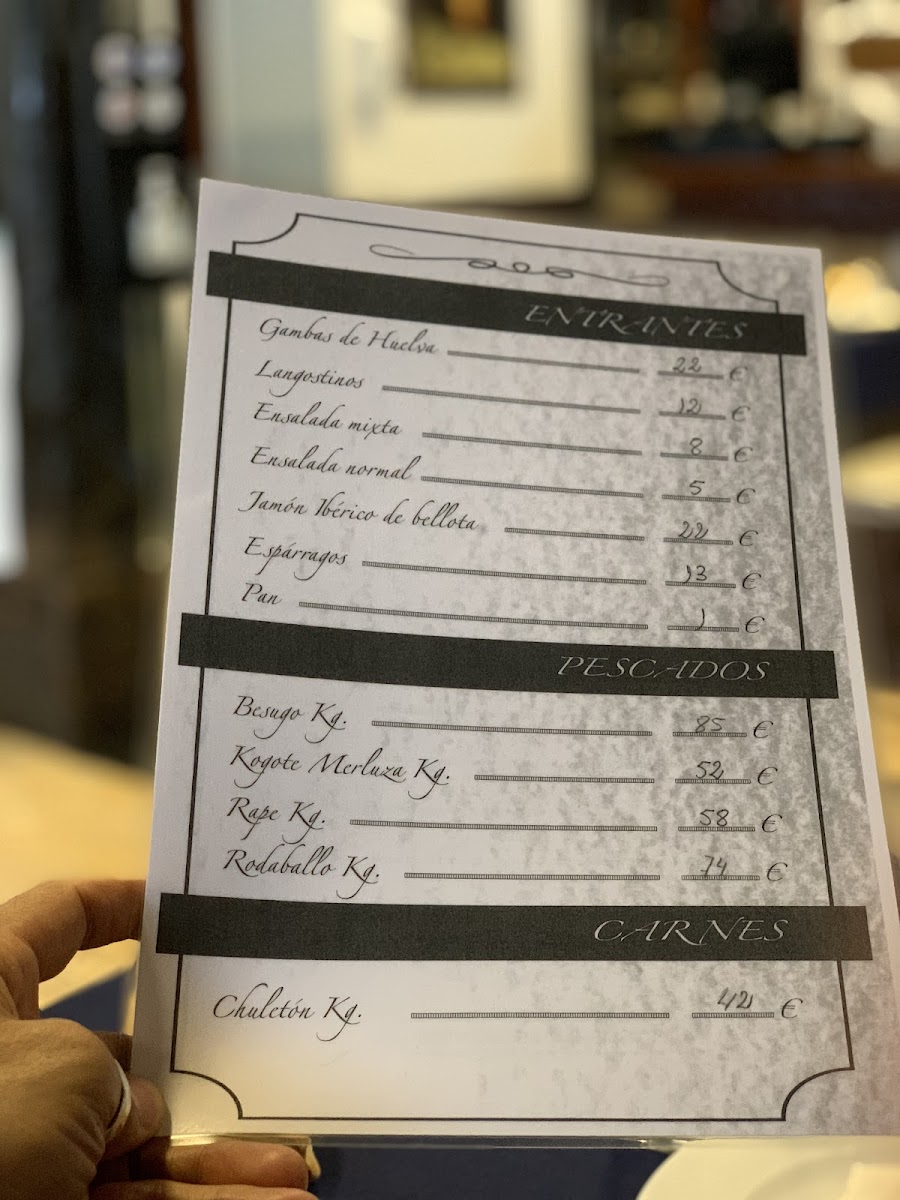 ENTRANTES
Gambas de Huelva 22 €
Langostinos 12 €
Ensalada mixta 8 €
Ensalada normal 5 €
Jamón Ibérico de bellota 22 €
Espárragos 13 €
Pan 1 €
PESCADOS
Besugo Kg. 85 €
Kogote Merluza Kg. 52 €
Rape Kg. 58 €
Rodaballo Kg. 74 €
CARNES
Chuletón Kg. 42 €